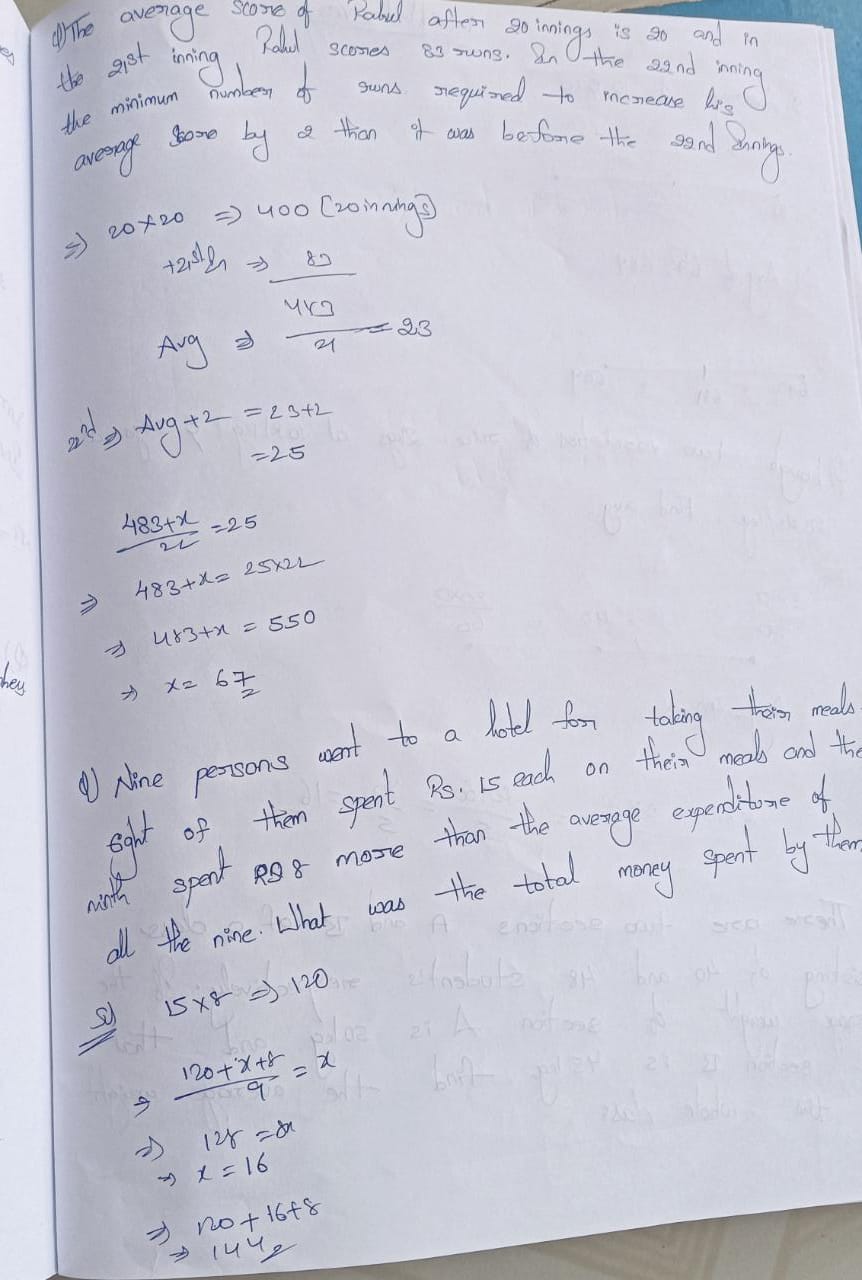 Q) The average score of Rahul after 20 innings is 20 and in
the 21st inning Rahul scores 83 runs. In the 22nd inning
the minimum number of runs required to increase his
average score by 2 than it was before the 22nd Innings.
⇒ 20×20 ⇒ 400 (20innings)
+21st In ⇒ 83
Avg ⇒ 483/21 = 23
22nd ⇒ Avg+2 = 23+2
=25
483+x/22 =25
⇒ 483+x= 25×22
⇒ 483+x = 550
⇒ x= 67
hey
Q) Nine persons went to a hotel for taking their meals.
Eight of them spent Rs. 15 each on their meals and the
ninth spent RS 8 more than the average expenditure of
all the nine. What was the total money spent by them
Sol 15×8 ⇒ 120
⇒ 120+x+8/9 = x
⇒ 128 =8x
⇒ x = 16
⇒ 120+16+8
⇒ 144